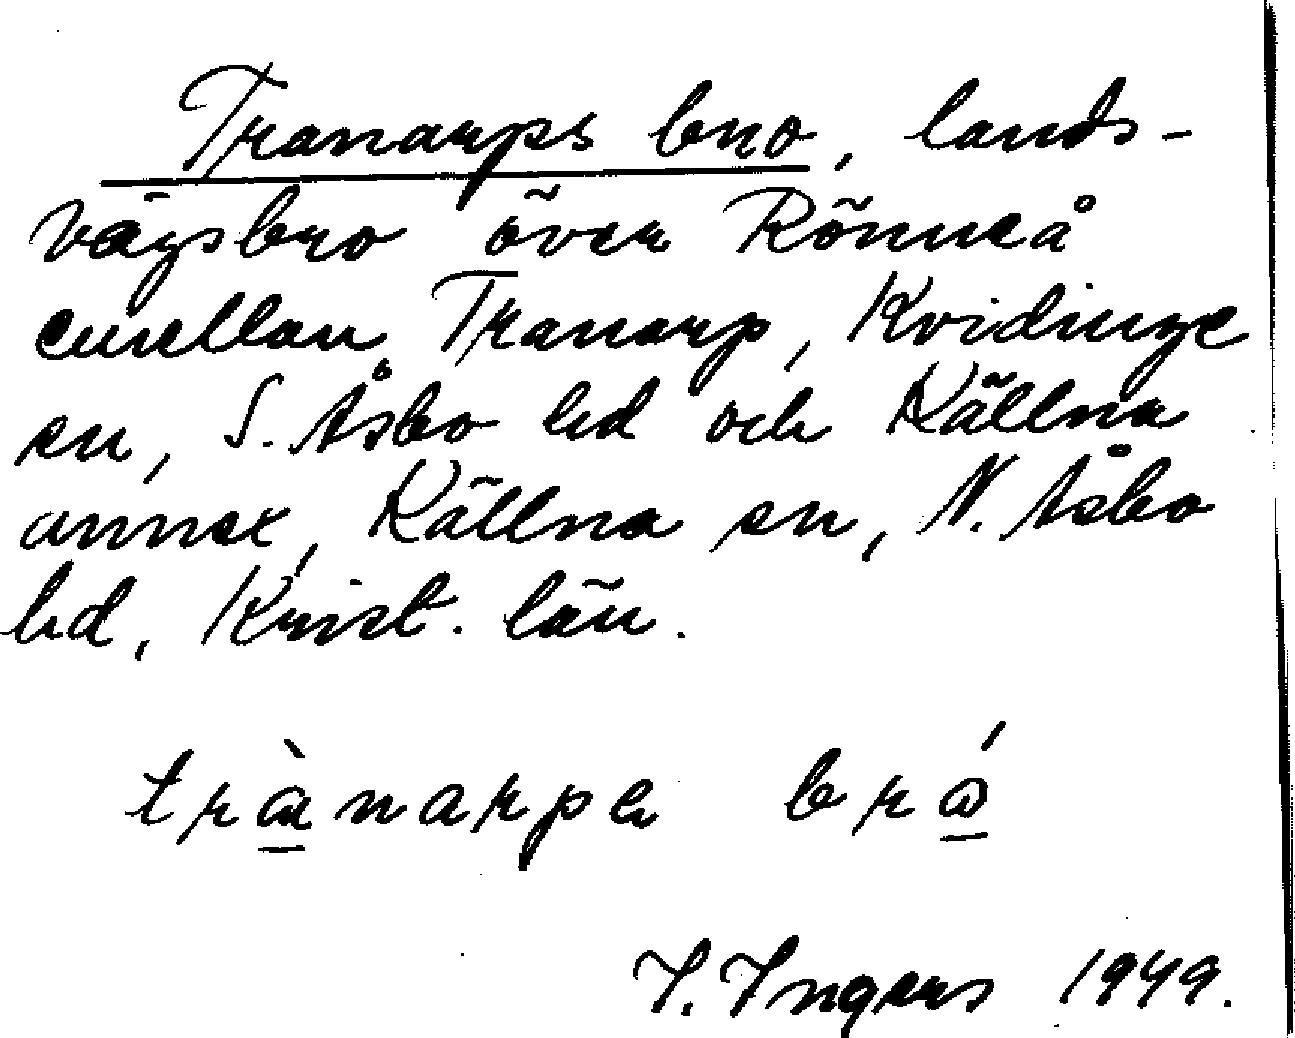 Tranarps bro, lands-
vägsbro över Rönneå
emellan Tranarp, Kvidinge
sn, S. Åsbo hd och Källna
annex, Källna sn, N. Åsbo
hd, Krist. län.
trànarpa bró
I. Ingers 1949.